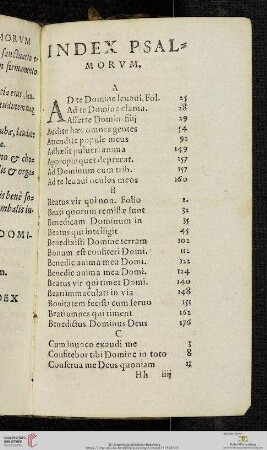 MORVM
INDEX PSAL=
MORVM.
A
AD te Domine leuaui. Fol. 25
Ad te Domine clama. 28
Afferte Domin. filij 29
Audite hæc omnes gentes 54
Attendite popule meus 92
Adhæsit puluer. anima 149
Appropinquet deprecat. 157
Ad Dominum cum trib. 157
Ad te leuaui oculos meos 160
B
Beatus vir qui non. Folio 1.
Beati quorum remissæ sunt 32
Benedicam Dominum in 35
Beatus qui intelligit 45
Benedixisti Domine terram 102
Bonum est confiteri Domi. 111
Benedic anima mea Domi. 122
Benedic anima mea Domi. 124
Beatus vir qui timet Domi. 140
Beati immaculati in via 148
Bonitatem fecisti cum seruo 151
Beati omnes qui timent 162
Benedictus Dominus Deus 176
C
Cum inuoco exaudi me 3
Confitebor tibi Domine in toto 8
Conserua me Deus quoniam
Hh iiij
DOMI-
DEX